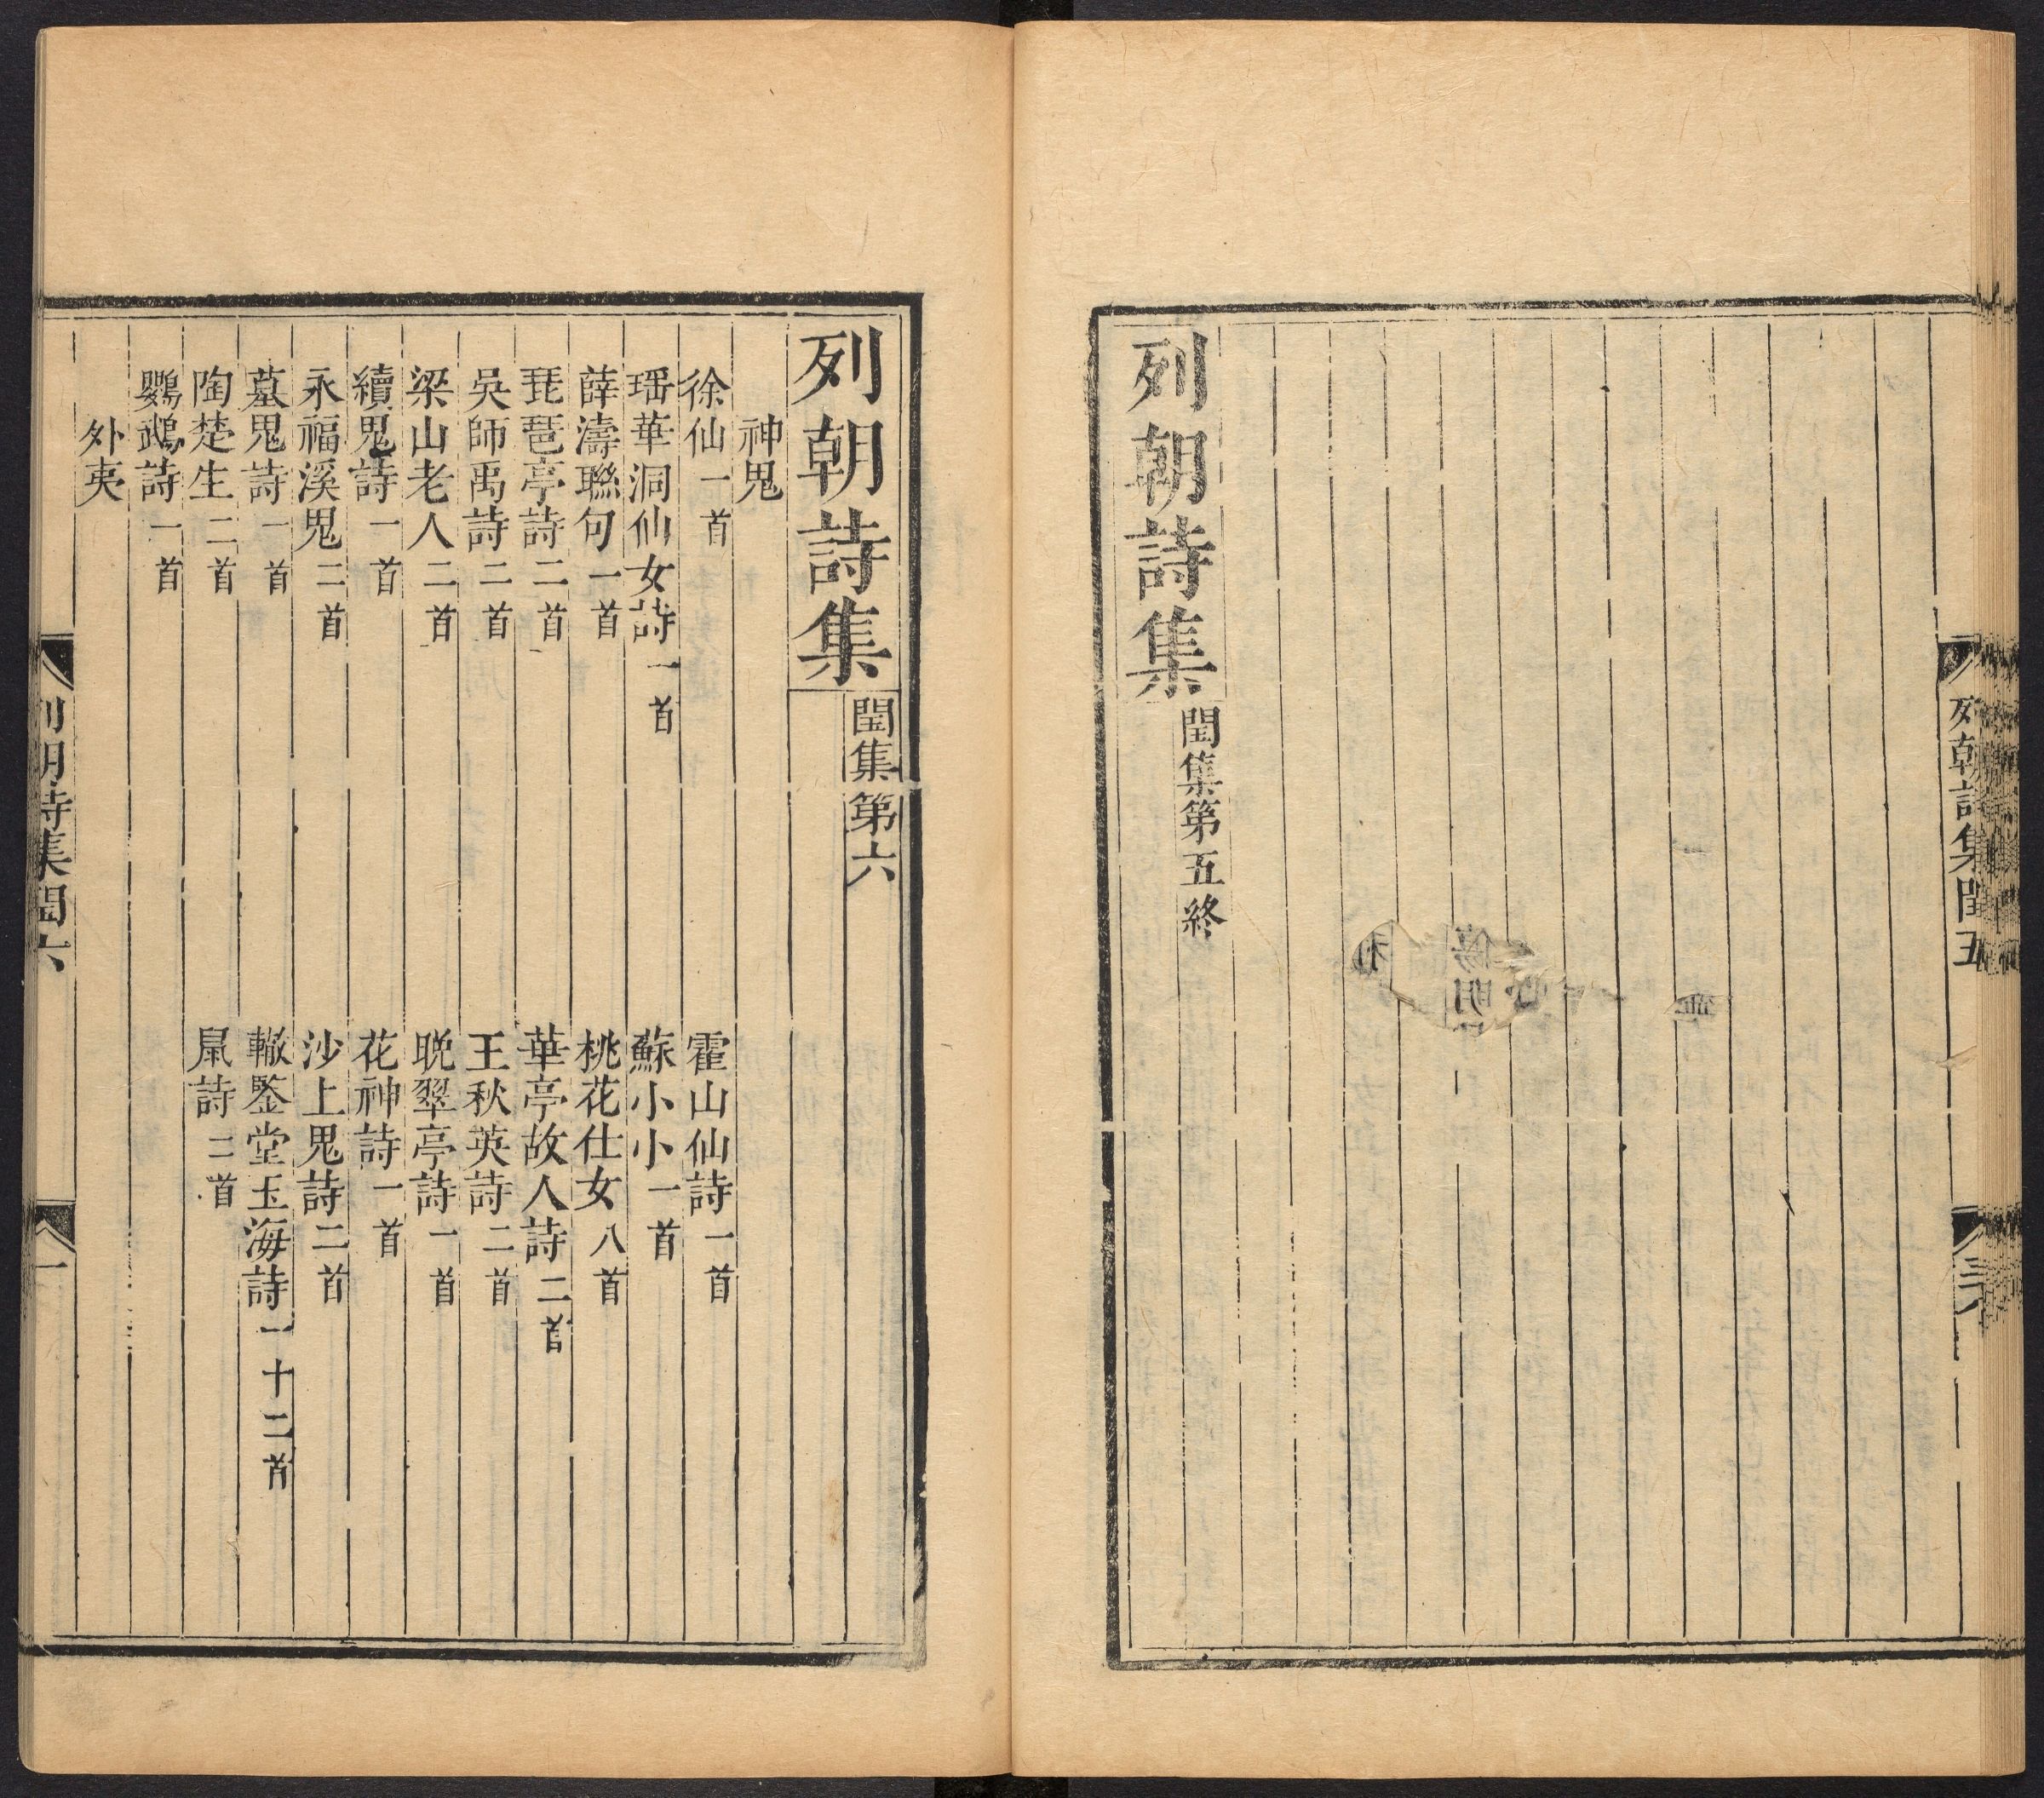 列朝詩集閏五
列朝詩集 閏集第五終
列朝詩集 閏集第六
神鬼
徐仙一首 霍山仙詩一首
瑶華洞仙女詩一首 蘇小小一首
薛濤聯句一首 桃花仕女八首
琵琶亭詩二首 華亭故人詩二首
吳師禹詩二首 王秋英詩二首
梁山老人二首 晚翠亭詩一首
續鬼詩一首 花神詩一首
永福溪鬼二首 沙上鬼詩二首
墓鬼詩一首 轍鋻堂玉海詩一十二首
陶楚生二首 鼠詩二首
鸚鵡詩一首
外夷
列朝詩集閏六 一